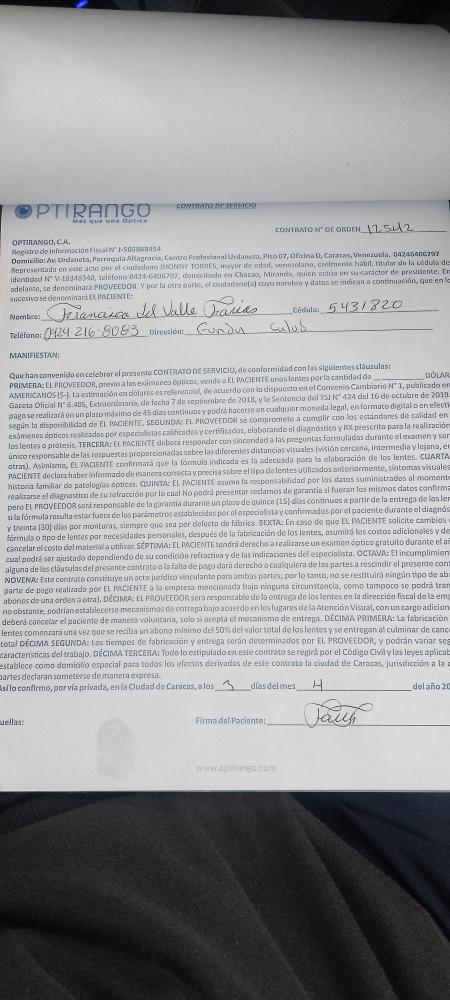 OPTIRANGO
Más que una Optica
CONTRATO DE SERVICIO
CONTRATO N° DE ORDEN 12542
OPTIRANGO, C.A.
Registro de Información Fiscal N° J-505868454
Domicilio: Av. Urdaneta, Parroquia Altagracia, Centro Profesional Urdaneta, Piso 07, Oficina D, Caracas, Venezuela. 04246406797
Representada en este acto por el ciudadano JHONNY TORRES, mayor de edad, venezolano, civilmente hábil, titular de la cédula de
identidad N° V-18348340, teléfono 0424-6406797, domiciliado en Chacao, Miranda, quien actúa en su carácter de presidente. En
adelante, se denominará PROVEEDOR. Y por la otra parte, el ciudadano(a) cuyo nombre y datos se indican a continuación, que en lo
sucesivo se denominará EL PACIENTE:
Nombre: Francisca del Valle Farias Cédula: 5431820
Teléfono: 0424 216-8083 Dirección:
MANIFIESTAN:
Que han convenido en celebrar el presente CONTRATO DE SERVICIO, de conformidad con las siguientes cláusulas:
PRIMERA: EL PROVEEDOR, previo a los exámenes ópticos, vende a EL PACIENTE unos lentes por la cantidad de ________ DÓLAR
AMERICANOS ($-). La estimación en dólares es referencial, de acuerdo con lo dispuesto en el Convenio Cambiario N° 1, publicado en
Gaceta Oficial N° 6.405, Extraordinaria, de fecha 7 de septiembre de 2018, y la Sentencia del TSJ N° 424 del 16 de octubre de 2019.
pago se realizará en un plazo máximo de 45 días continuos y podrá hacerse en cualquier moneda legal, en formato digital o en efecti
según la disponibilidad de EL PACIENTE. SEGUNDA: EL PROVEEDOR se compromete a cumplir con los estándares de calidad en
exámenes ópticos realizados por especialistas calificados y certificados, elaborando el diagnóstico y RX prescrito para la realización
los lentes o prótesis. TERCERA: EL PACIENTE deberá responder con sinceridad a las preguntas formuladas durante el examen y ser
único responsable de las respuestas proporcionadas sobre las diferentes distancias visuales (visión cercana, intermedia y lejana, en
otras). Asimismo, EL PACIENTE confirmará que la fórmula indicada es la adecuada para la elaboración de los lentes. CUARTA
PACIENTE declara haber informado de manera correcta y precisa sobre el tipo de lentes utilizados anteriormente, síntomas visuales
historia familiar de patologías ópticas. QUINTA: EL PACIENTE asume la responsabilidad por los datos suministrados al moment
realizarse el diagnostico de su refracción por lo cual No podrá presentar reclamos de garantía si fueran los mismos datos confirma
pero EL PROVEEDOR será responsable de la garantía durante un plazo de quince (15) días continuos a partir de la entrega de los len
si la fórmula resulta estar fuera de los parámetros establecidos por el especialista y confirmados por el paciente durante el diagnós
y treinta (30) días por monturas, siempre que sea por defecto de fábrica. SEXTA: En caso de que EL PACIENTE solicite cambios
fórmula o tipo de lentes por necesidades personales, después de la fabricación de los lentes, asumirá los costos adicionales y de
cancelar el costo del material a utilizar. SÉPTIMA: EL PACIENTE tendrá derecho a realizarse un examen óptico gratuito durante el añ
cual podrá ser ajustado dependiendo de su condición refractiva y de las indicaciones del especialista. OCTAVA: El incumplimien
alguna de las cláusulas del presente contrato o la falta de pago dará derecho a cualquiera de las partes a rescindir el presente con
NOVENA: Este contrato constituye un acto jurídico vinculante para ambas partes; por lo tanto, no se restituirá ningún tipo de ab
parte de pago realizado por EL PACIENTE a la empresa mencionada bajo ninguna circunstancia, como tampoco se podrá tran
abonos de una orden a otra). DÉCIMA: EL PROVEEDOR será responsable de la entrega de los lentes en la dirección fiscal de la emp
no obstante, podrían establecerse mecanismos de entrega bajo acuerdo en los lugares de la Atención Visual, con un cargo adicion
deberá cancelar el paciente de manera voluntaria, solo si acepta el mecanismo de entrega. DÉCIMA PRIMERA: La fabricación
lentes comenzará una vez que se reciba un abono mínimo del 50% del valor total de los lentes y se entregan al culminar de canc
total DÉCIMA SEGUNDA: Los tiempos de fabricación y entrega serán determinados por EL PROVEEDOR, y podrán variar seg
características del trabajo. DÉCIMA TERCERA: Todo lo estipulado en este contrato se regirá por el Código Civil y las leyes aplicab
establece como domicilio especial para todos los efectos derivados de este contrato la ciudad de Caracas, jurisdicción a la c
partes declaran someterse de manera expresa.
Así lo confirmo, por vía privada, en la Ciudad de Caracas, a los 3 días del mes 4 del año 20
uellas: Firma del Paciente:
www.optirango.com